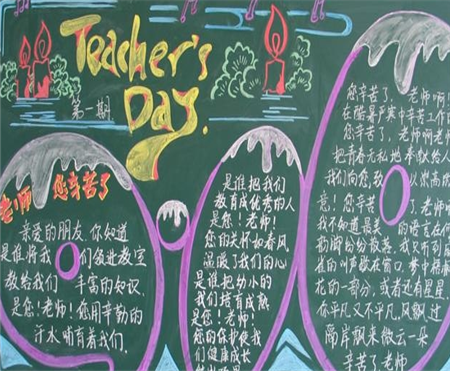 Teacher's
Day.
第一期
老师 您辛苦了
亲爱的朋友,你知道
是谁将我们领进教室
教给我们丰富的知识
是您!老师!您用辛勤的
汗水哺育着我们.
是谁把我们
教育成优秀的人
是您!老师!
您的关怀如春风
温暖了我们的心
是谁把幼小的
我们培育成熟
是您!老师!
您的保护使我
们健康成长
您辛苦了,老师啊!
在酷暑严寒中辛苦工作
您辛苦了,老师啊老师
把青春无私地奉献给人
我们向您致以崇高的
意!您辛苦了,老师
我不知道最美的语言在何
又听到
雀的叫声歇在窗口,梦中
花的一部分,或者还有星星
平凡又不平凡,风飘过
南岸飘来微云一朵
辛苦了老师